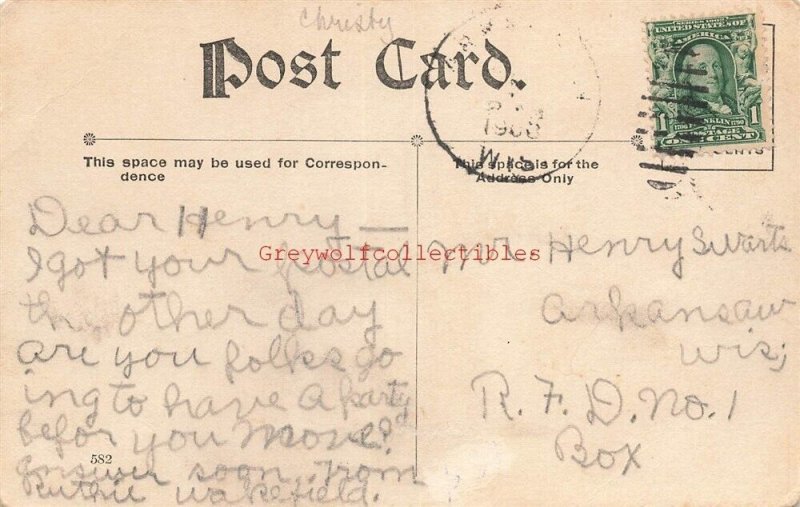 Christy
Post Card.
SERIES 1902
UNITED STATES OF
AMERICA
FRANKLIN
1 1
POSTAGE
ONE CENT
CENTS
1908
WIS
This space may be used for Correspon-
dence
This space is for the
Address Only
Dear Henry —
I got your postal
the other day
are you folks go
ing to have a party
befor you move?
answer soon. From
Ruthie Wakefield.
582
Mr Henry Swarts
Arkansaw
Wis;
R. F. D. No. 1
Box
Greywolfcollectibles